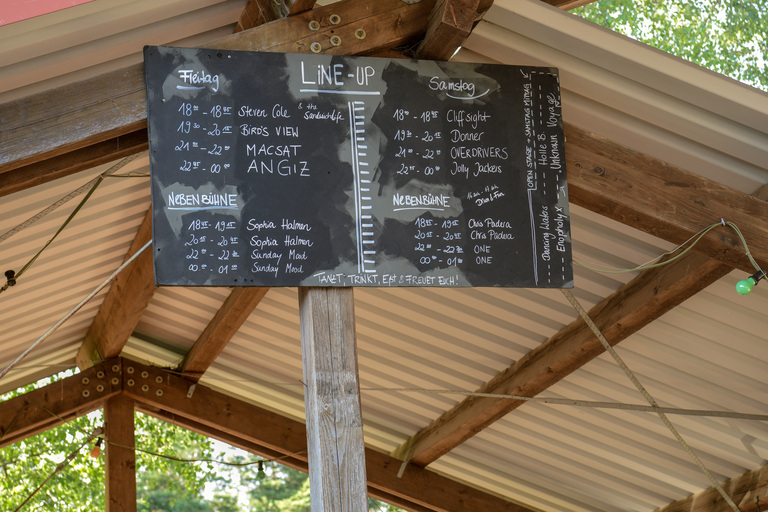 LiNE-UP
Freitag
18⁰⁰ - 18⁴⁵ Steven Cole & the Sandwichlife
19³⁰ - 20¹⁵ BIRD'S VIEW
21⁰⁰ - 22⁰⁰ MACSAT
22⁴⁵ - 00⁰⁰ ANGIZ
NEBENBÜHNE
18⁴⁵ - 19¹⁵ Sophia Halmen
20¹⁵ - 20⁴⁵ Sophia Halmen
22⁰⁰ - 22³⁰ Sunday Mood
00⁰⁰ - 01⁰⁰ Sunday Mood
Samstag
18⁰⁰ - 18⁴⁵ Cliffsight
19³⁰ - 20¹⁵ Donner
21⁰⁰ - 22⁰⁰ OVERDRIVERS
22⁴⁵ - 00⁰⁰ Jolly Jackers
NEBENBÜHNE
18⁴⁵ - 19¹⁵ Chris Padera
20¹⁵ - 20⁴⁵ Chris Padera
22⁰⁰ - 22³⁰ ONE
00⁰⁰ - 01⁰⁰ ONE
OPEN STAGE SAMSTAG MITTAG
Dancing
Holle 8
Unknown Voyage
TANZT, TRINKT, EAT & FREUET EUCH!